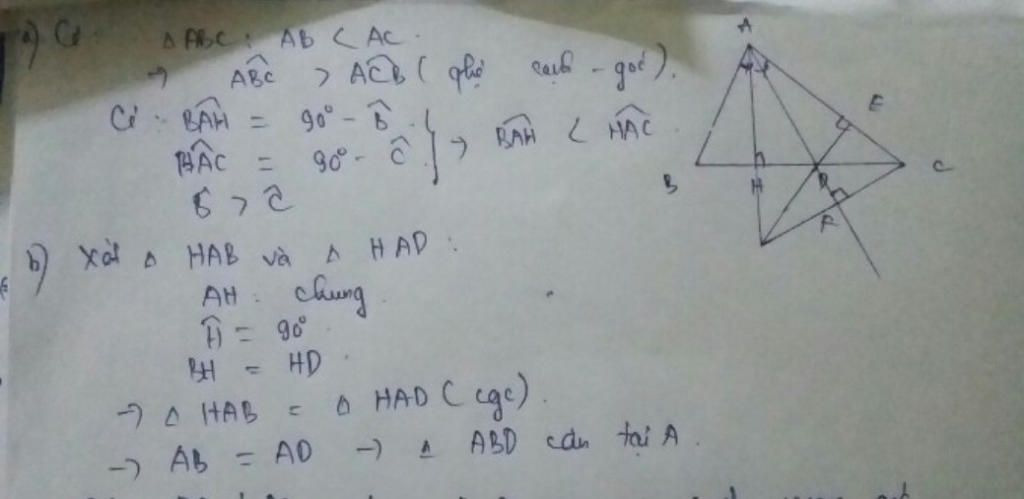 a) Có: △ABC: AB < AC.
→ ABĈ > ACB̂ ( cạnh - góc).
Có: BAĤ = 90° - B̂
HAĈ = 90° - Ĉ } → BAĤ < HAĈ
B̂ > Ĉ
b) Xét △ HAB và △ HAD :
AH : chung.
Ĥ = 90°.
BH = HD.
→ △ HAB = △ HAD ( cgc).
→ AB = AD → △ ABD cân tại A.
A
E
B
H
D
C
F